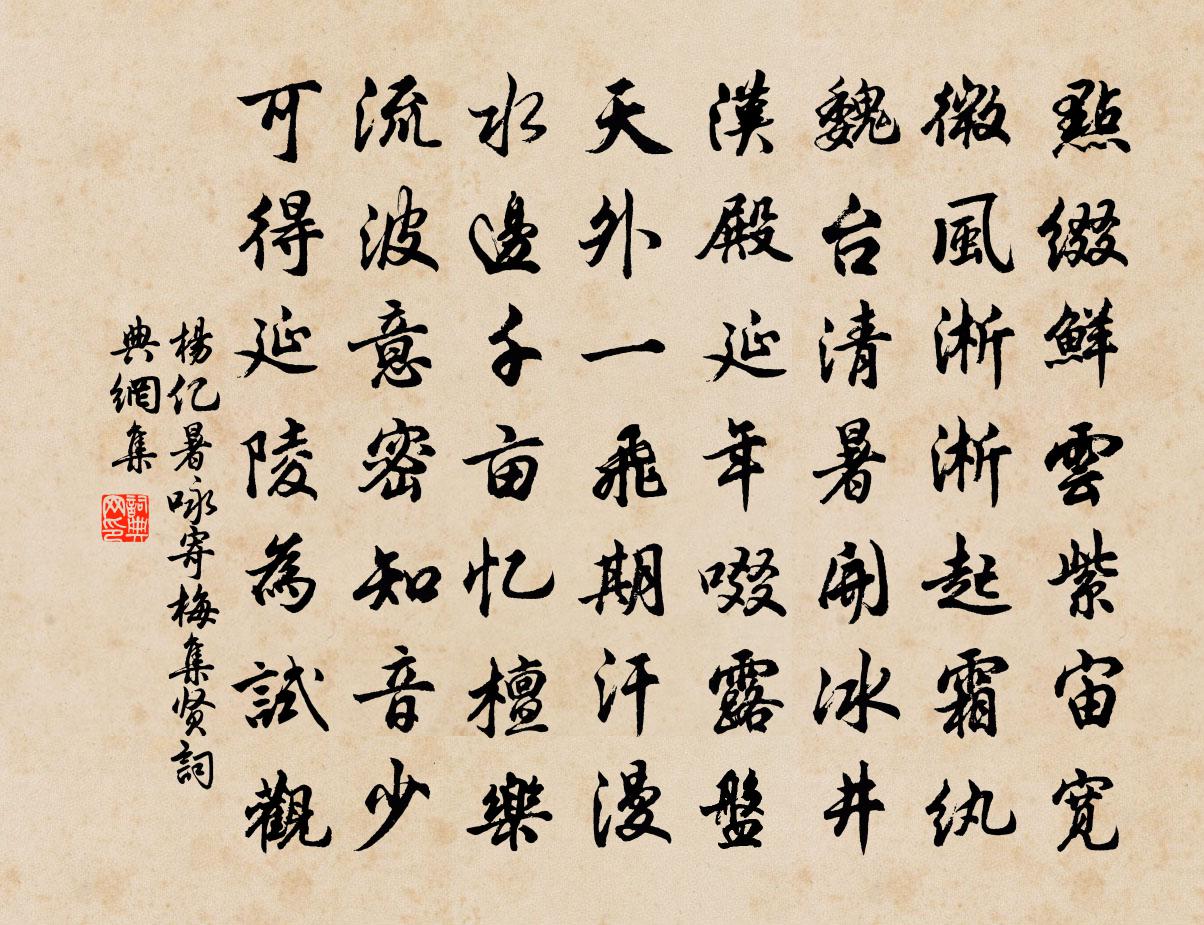 點綴鮮雲紫宙寬
微風淅淅起霜紈
魏台清暑開冰井
漢殿延年啜露盤
天外一飛期汗漫
水邊千亩忆檀欒
流波意密知音少
可得延陵為試觀
楊亿暑咏寄梅集贤詞
典網集
詞典
网印